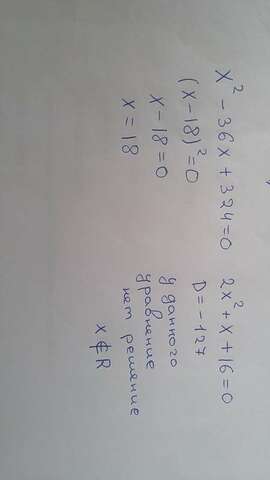 x² - 36x + 324 = 0
(x - 18)² = 0
x - 18 = 0
x = 18
2x² + x + 16 = 0
D = -127
у данного
уравнение
нет решение
x ∉ R